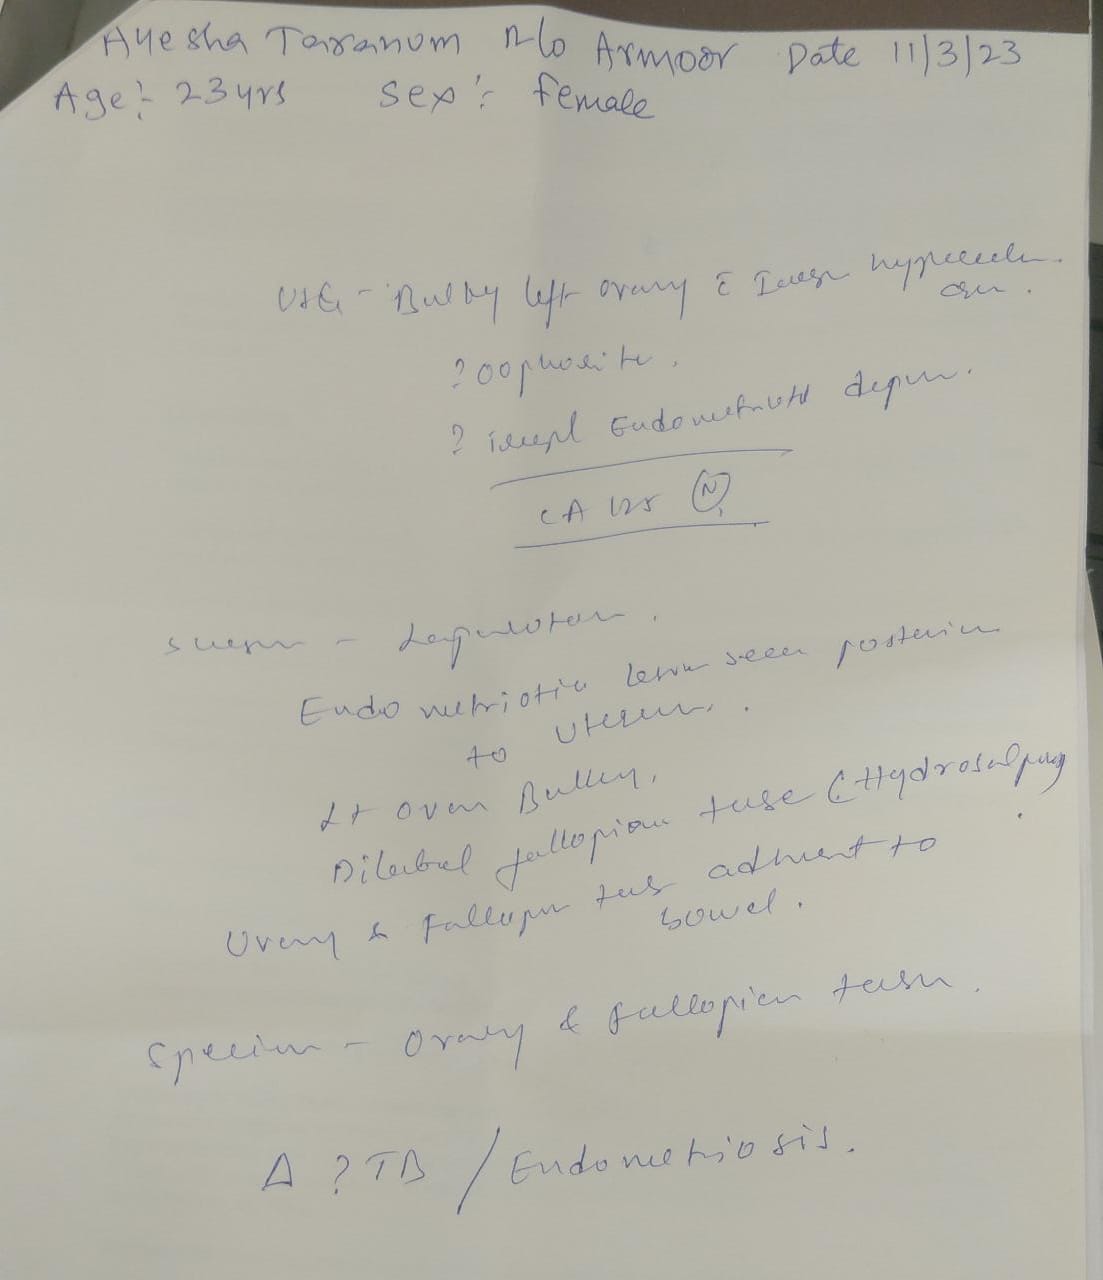 Ayesha Taranum R/o Armoor Date 11/3/23
Age:- 23 yrs Sex:- female
USG - Bulky left ovary c̄ hypoechoic
? oophoritis.
? Endometriotic
CA 125 (N)
- Laparotomy.
Endometriotic lesion seen posterior
to uterus.
Lt ovary Bulky.
Dilated fallopian tube (Hydrosalpinx
Ovary & Fallopian tube adherent to
bowel.
Specimen - Ovary & fallopian tube.
Δ ? TB / Endometriosis.